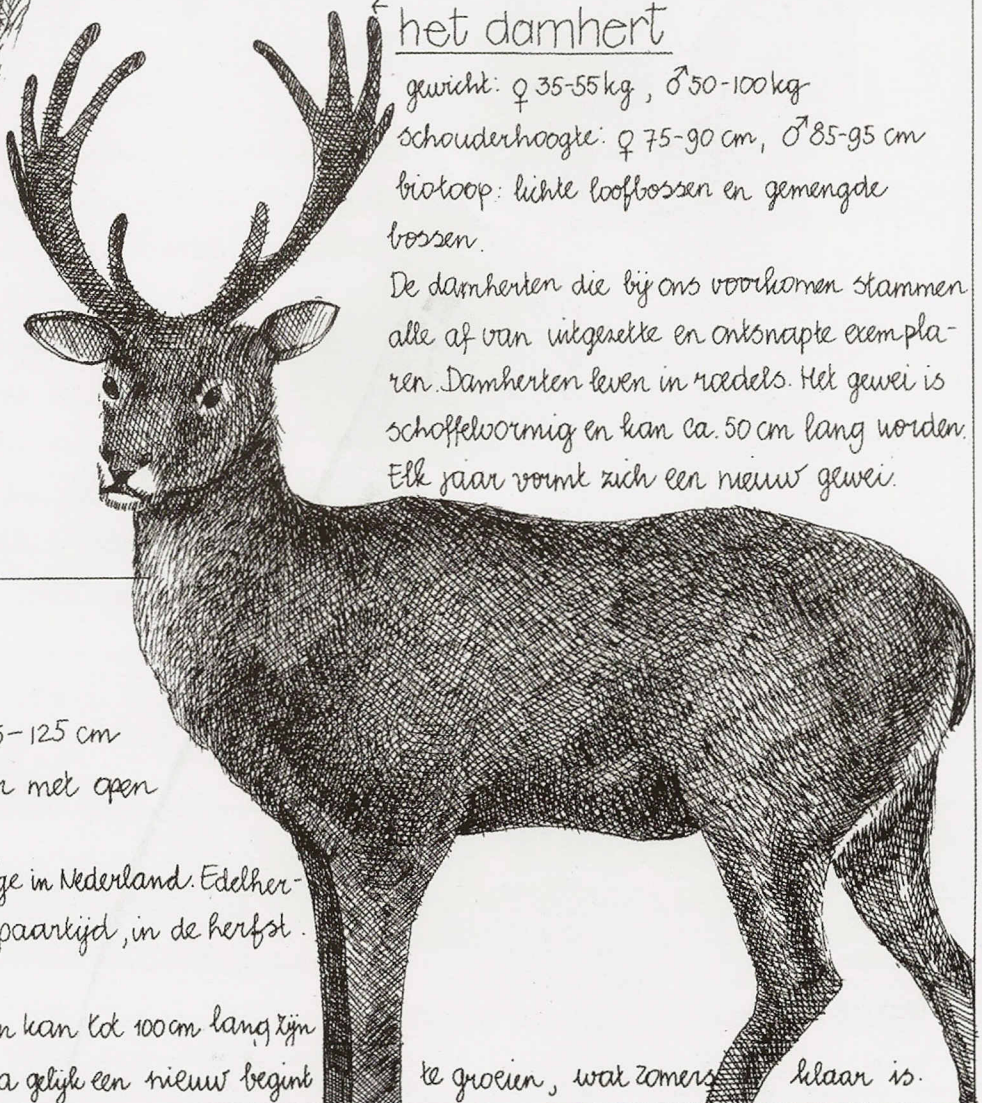 het damhert
gewicht: ♀ 35-55 kg , ♂ 50-100 kg
schouderhoogte: ♀ 75-90 cm, ♂ 85-95 cm
biotoop: lichte loofbossen en gemengde
bossen.
De damherten die bij ons voorkomen stammen
alle af van uitgezette en ontsnapte exempla-
ren. Damherten leven in roedels. Het gewei is
schoffelvormig en kan ca. 50 cm lang worden.
Elk jaar vormt zich een nieuw gewei.
-125 cm
met open
ge in Nederland. Edelher-
paartijd, in de herfst.
n kan tot 100 cm lang zijn
a gelijk een nieuw begint te groeien, wat zomers klaar is.